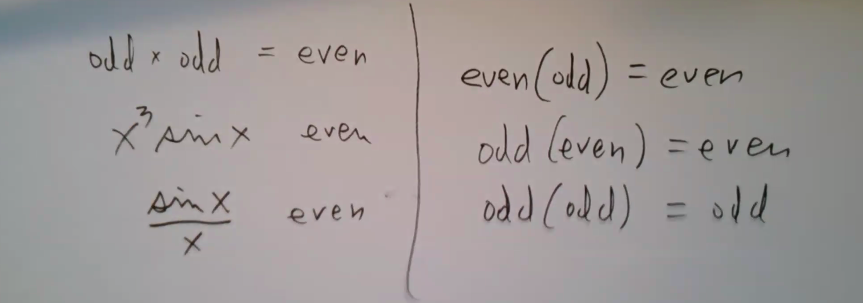 odd × odd = even
x³ sin x even
sin x / x even
even(odd) = even
odd(even) = even
odd(odd) = odd